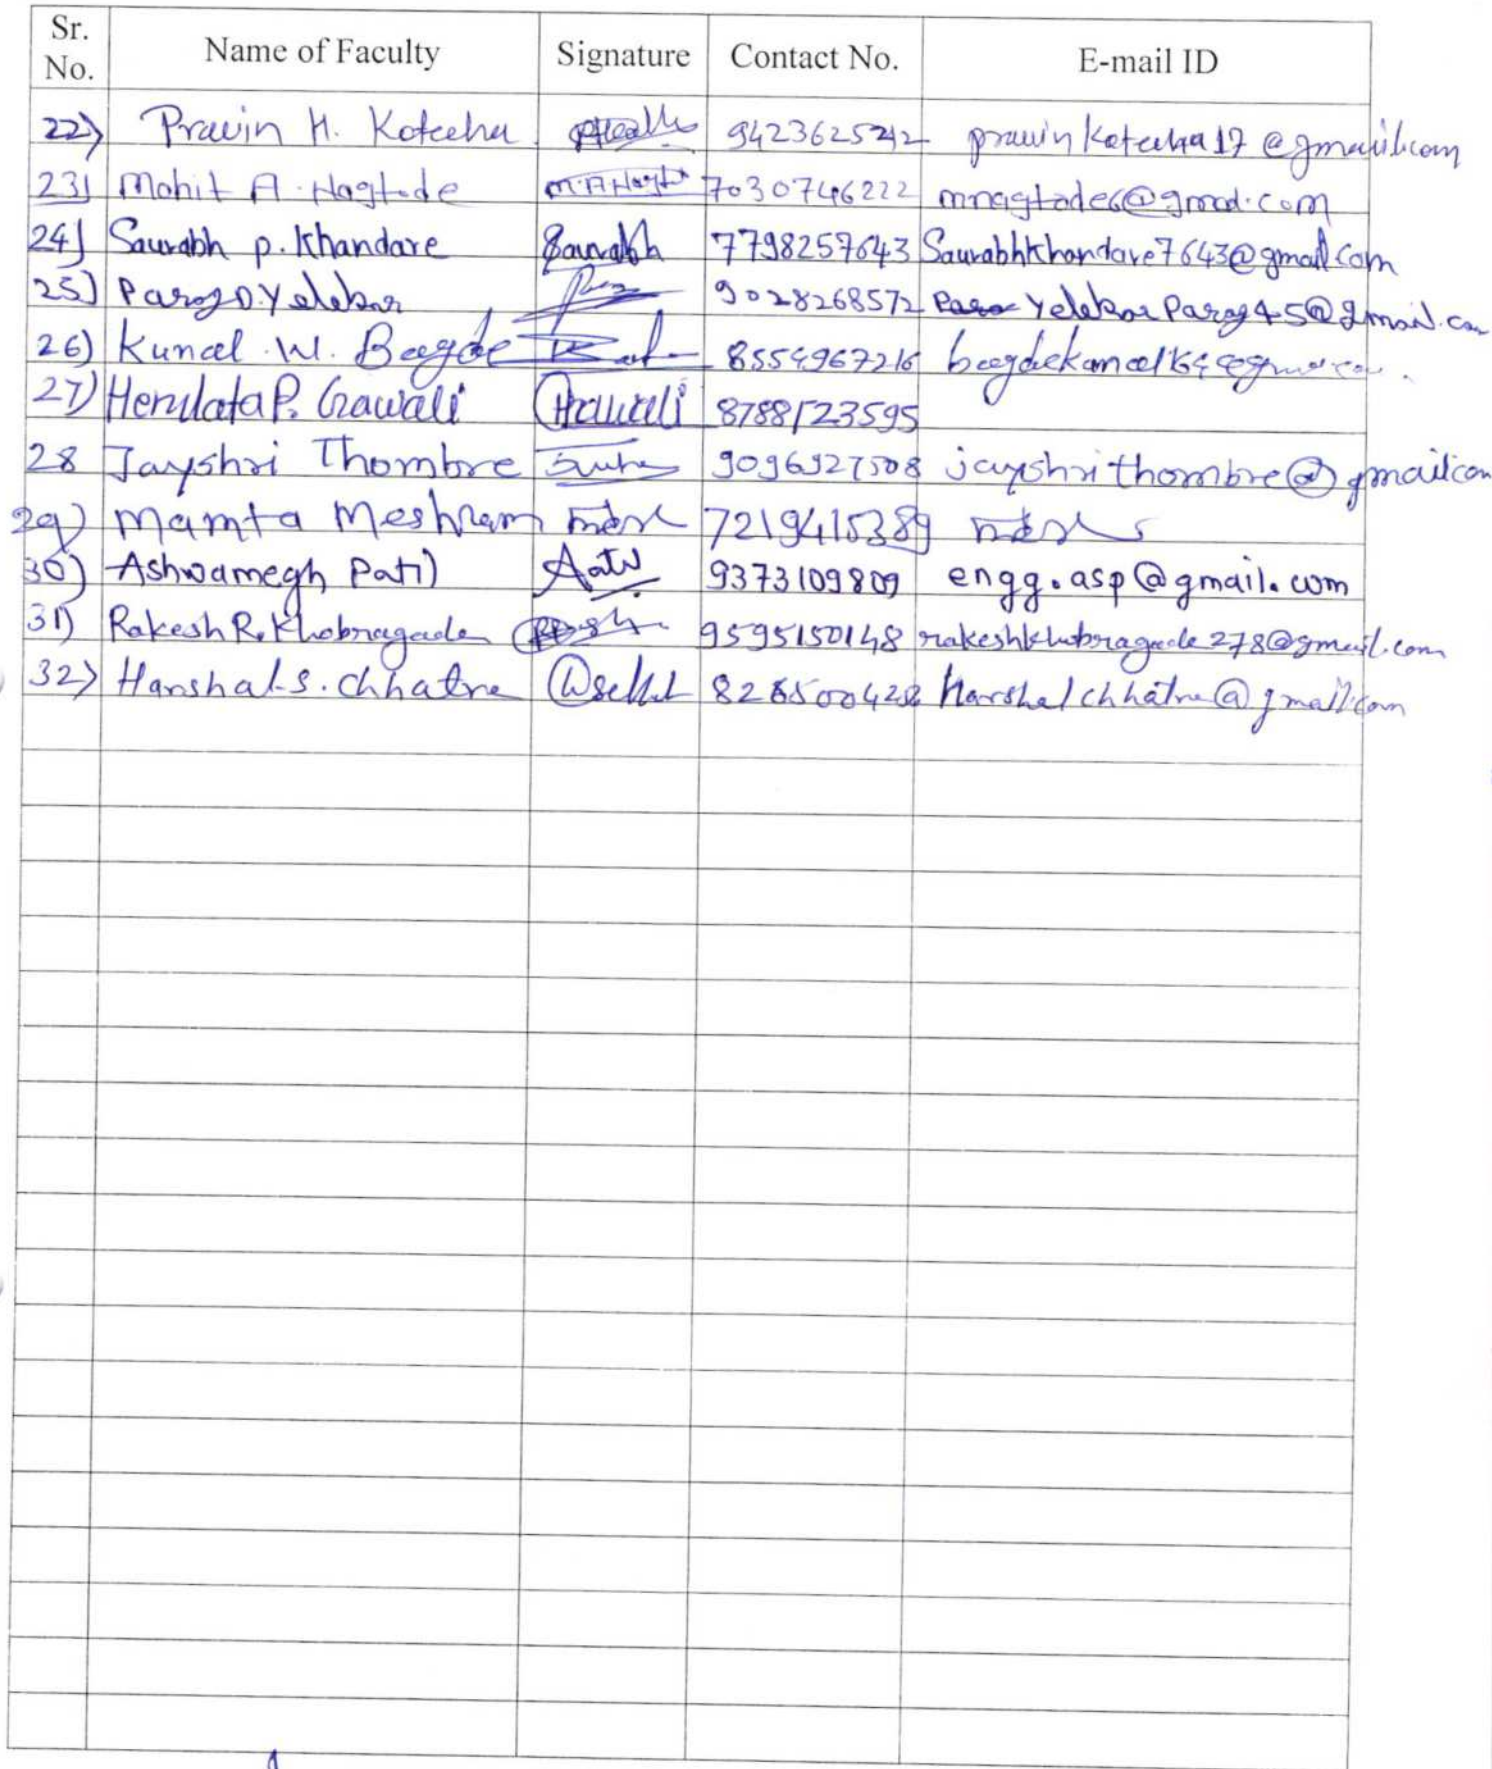 Sr. No. Name of Faculty Signature Contact No. E-mail ID
22) Pravin H. Kotecha 9423625242 pravinkotecha17@gmail.com
23) Mohit A. Nagtode M.A.Nagt 7030746222 mnagtode6@gmail.com
24) Saurabh p. Khandare Saurabh 7798257643 Saurabhkhandare7643@gmail.com
25) Parag D. Yelekar 9028268572 YelekarParag45@gmail.com
26) Kunal W. Bagde 8554967216
27) Hemlata P. Gawali Gawali 8788123595
28 Jayshri Thombre 9096927508 jayshrithombre@gmail.com
29) Mamta Meshram 7219415389
30) Ashwamegh Patil 9373109809 engg.asp@gmail.com
31) Rakesh R. Khobragade 9595150148 rakeshkhobragade278@gmail.com
32) Harshal.S.Chhatre harshalchhatre@gmail.com